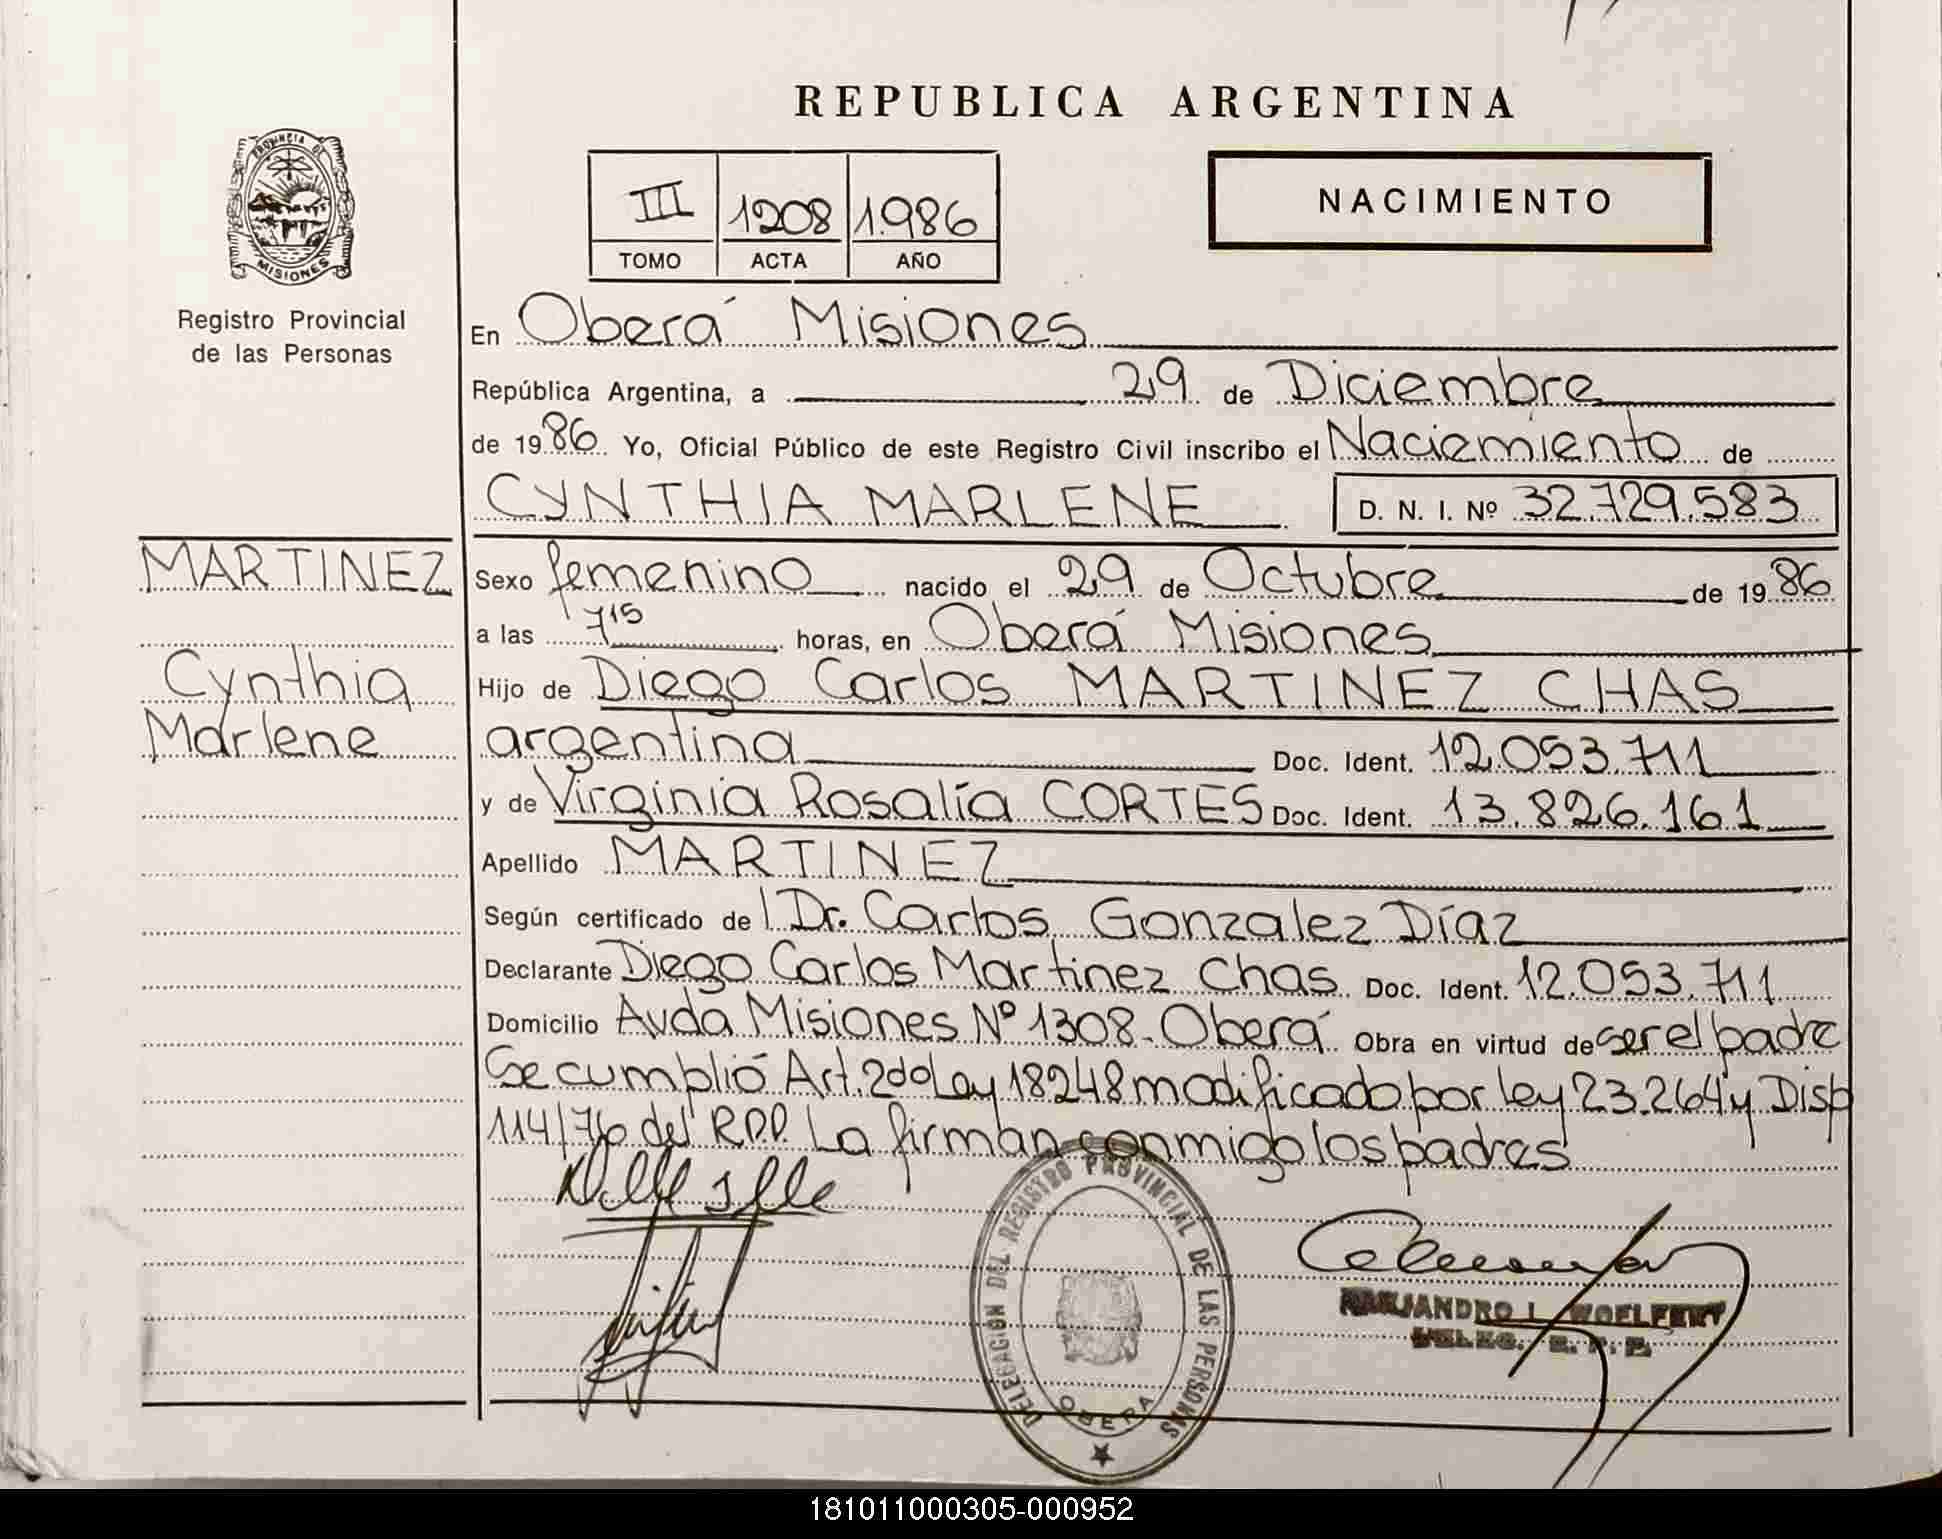 REPUBLICA ARGENTINA
PROVINCIA DE
MISIONES
Registro Provincial
de las Personas
III 1208 1.986
TOMO ACTA AÑO
NACIMIENTO
En Oberá Misiones
República Argentina, a 29 de Diciembre
de 1986. Yo, Oficial Público de este Registro Civil inscribo el Naciemiento de
CYNTHIA MARLENE D. N. I. Nº 32.729.583
MARTINEZ
Cynthia
Marlene
Sexo femenino nacido el 29 de Octubre de 1986
a las 7 15 horas, en Oberá Misiones
Hijo de Diego Carlos MARTINEZ CHAS
argentina Doc. Ident. 12.053.711
y de Virginia Rosalía CORTES Doc. Ident. 13.826.161
Apellido MARTINEZ
Según certificado de l Dr. Carlos Gonzalez Díaz
Declarante Diego Carlos Martinez Chas Doc. Ident. 12.053.711
Domicilio Avda Misiones Nº 1308. Oberá Obra en virtud de ser el padre
Se cumplió Art. 2do Ley 18248 modificado por ley 23.264 y Disp
114/76 del R.P.P. La firman conmigo los padres
DELEGACION DEL REGISTRO PROVINCIAL DE LAS PERSONAS
OBERA
181011000305-000952